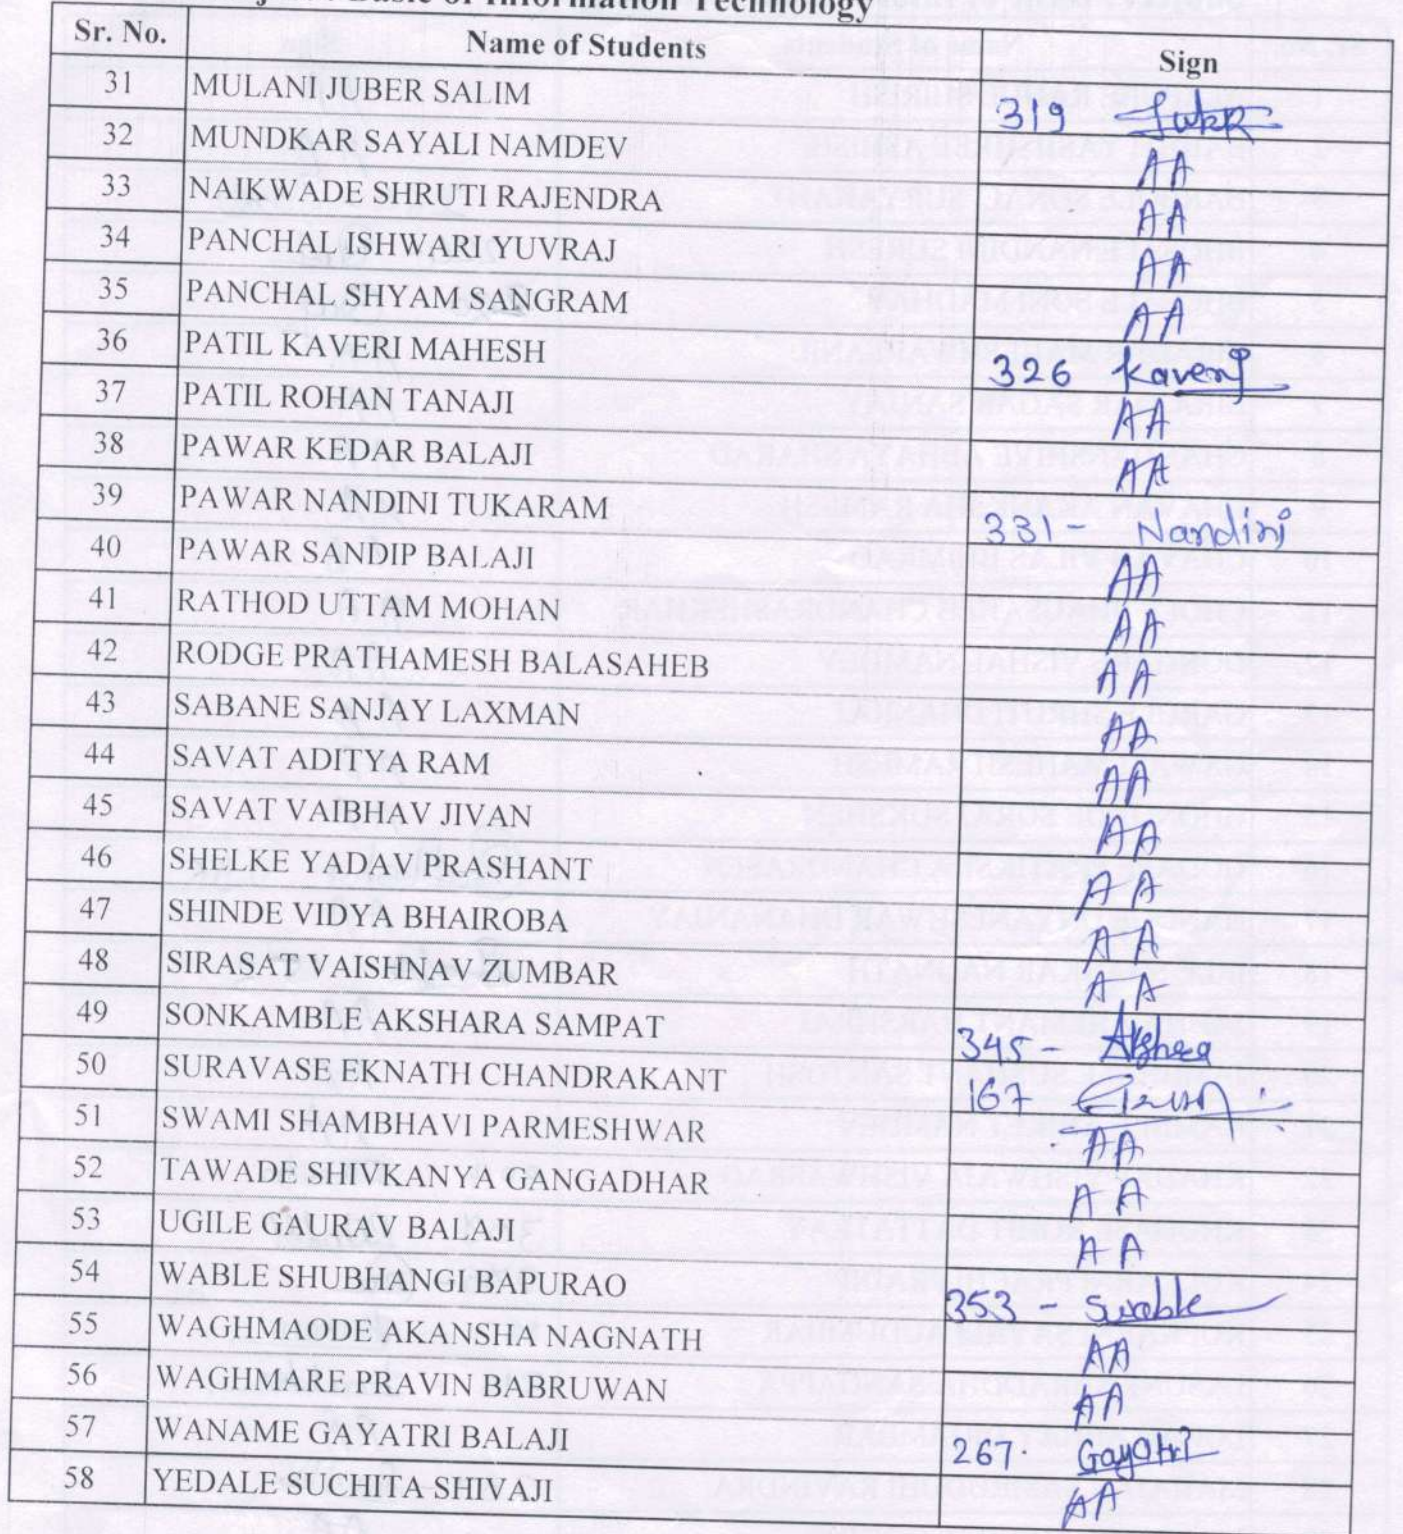 Basic of Information Technology
Sr. No. Name of Students Sign
31 MULANI JUBER SALIM 319
32 MUNDKAR SAYALI NAMDEV AA
33 NAIKWADE SHRUTI RAJENDRA AA
34 PANCHAL ISHWARI YUVRAJ AA
35 PANCHAL SHYAM SANGRAM AA
36 PATIL KAVERI MAHESH 326 Kaveri
37 PATIL ROHAN TANAJI AA
38 PAWAR KEDAR BALAJI AA
39 PAWAR NANDINI TUKARAM 331 - Nandini
40 PAWAR SANDIP BALAJI AA
41 RATHOD UTTAM MOHAN AA
42 RODGE PRATHAMESH BALASAHEB AA
43 SABANE SANJAY LAXMAN AA
44 SAVAT ADITYA RAM AA
45 SAVAT VAIBHAV JIVAN AA
46 SHELKE YADAV PRASHANT AA
47 SHINDE VIDYA BHAIROBA AA
48 SIRASAT VAISHNAV ZUMBAR AA
49 SONKAMBLE AKSHARA SAMPAT 345 -
50 SURAVASE EKNATH CHANDRAKANT 167
51 SWAMI SHAMBHAVI PARMESHWAR AA
52 TAWADE SHIVKANYA GANGADHAR AA
53 UGILE GAURAV BALAJI AA
54 WABLE SHUBHANGI BAPURAO 353 - Swable
55 WAGHMAODE AKANSHA NAGNATH AA
56 WAGHMARE PRAVIN BABRUWAN AA
57 WANAME GAYATRI BALAJI 267. Gayatri
58 YEDALE SUCHITA SHIVAJI AA